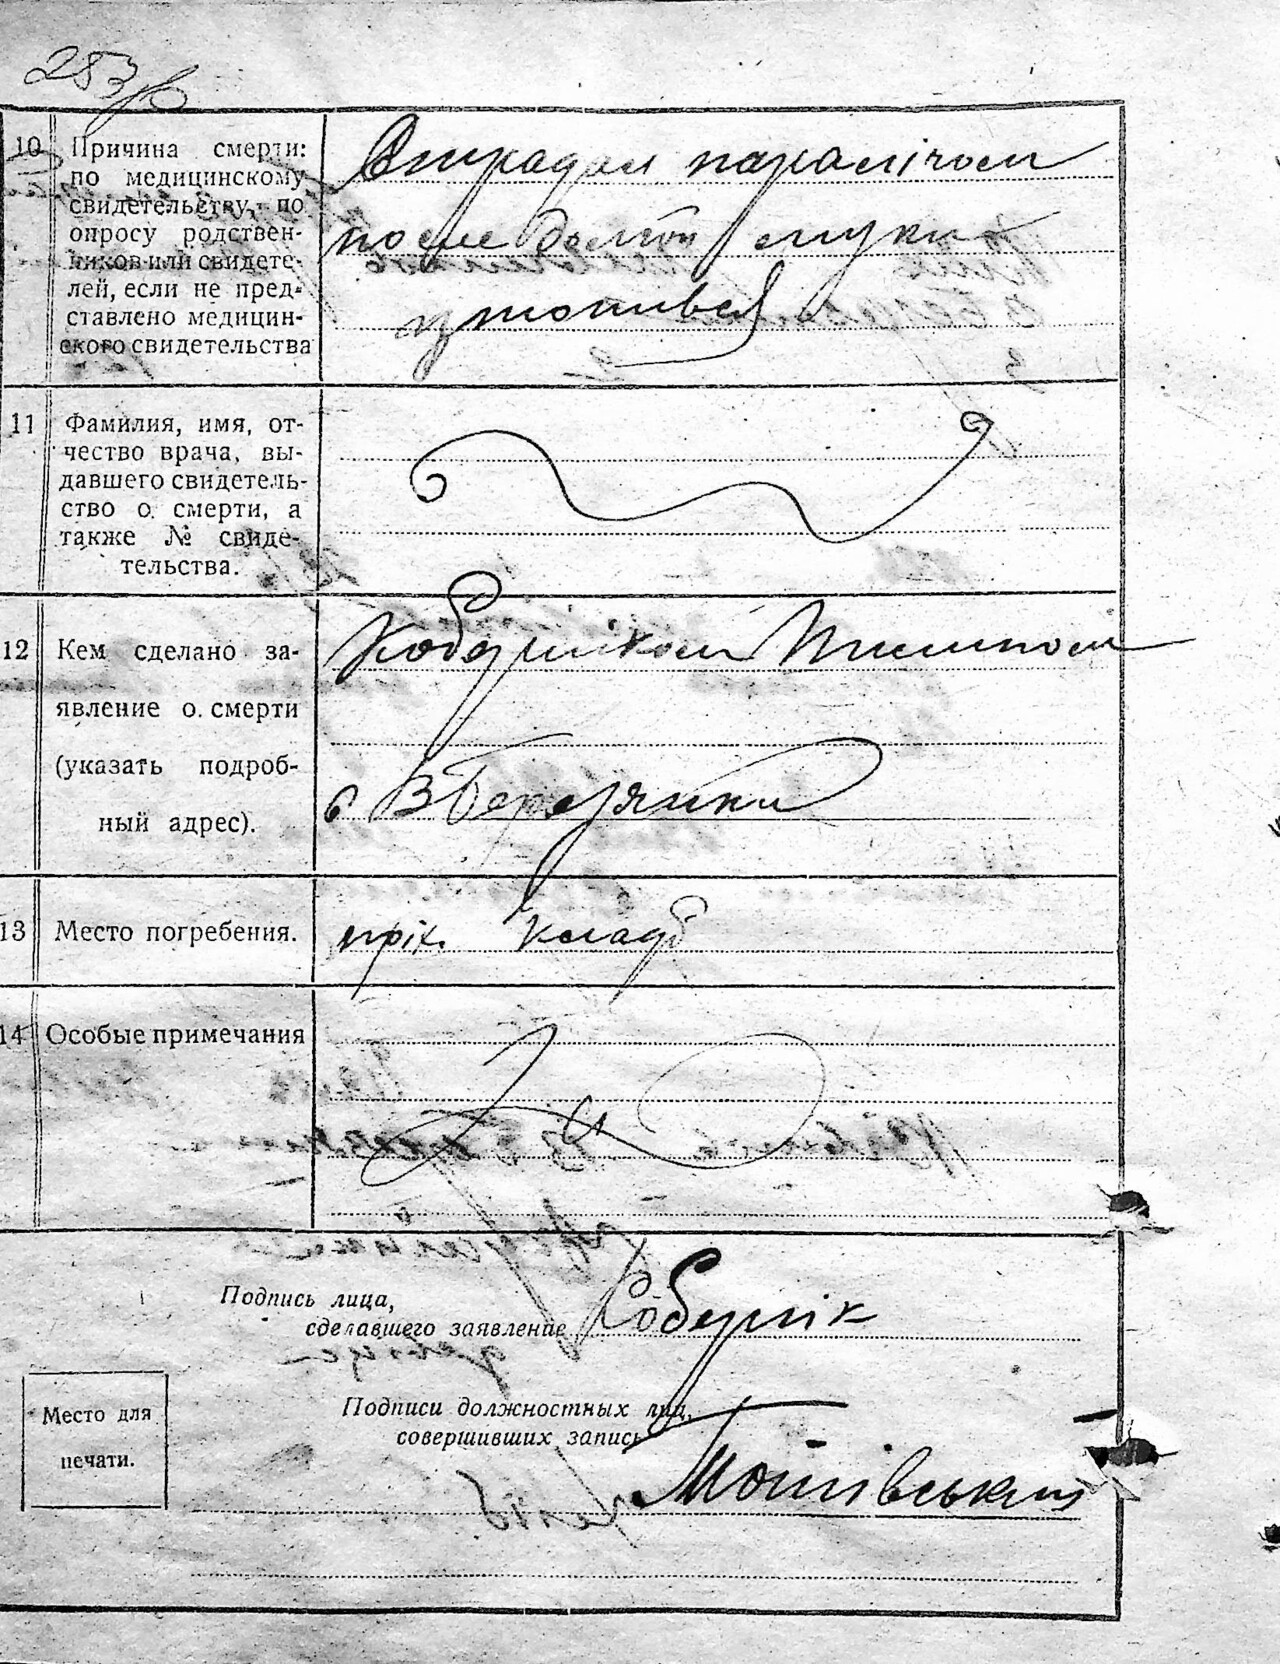 283
10 Причина смерти:
по медицинскому
свидетельству, по
опросу родствен-
ников или свидете-
лей, если не пред-
ставлено медицин-
ского свидетельства
Страдал паралічом
после долгой муки
утопився
11 Фамилия, имя, от-
чество врача, вы-
давшего свидетель-
ство о смерти, а
также № свиде-
тельства.
12 Кем сделано за-
явление о смерти
(указать подроб-
ный адрес).
с В Березянки
13 Место погребения.
пріх. кладб
14 Особые примечания
Подпись лица,
сделавшего заявление
Коберник
Подписи должностных лиц,
совершивших запись
Место для
печати.